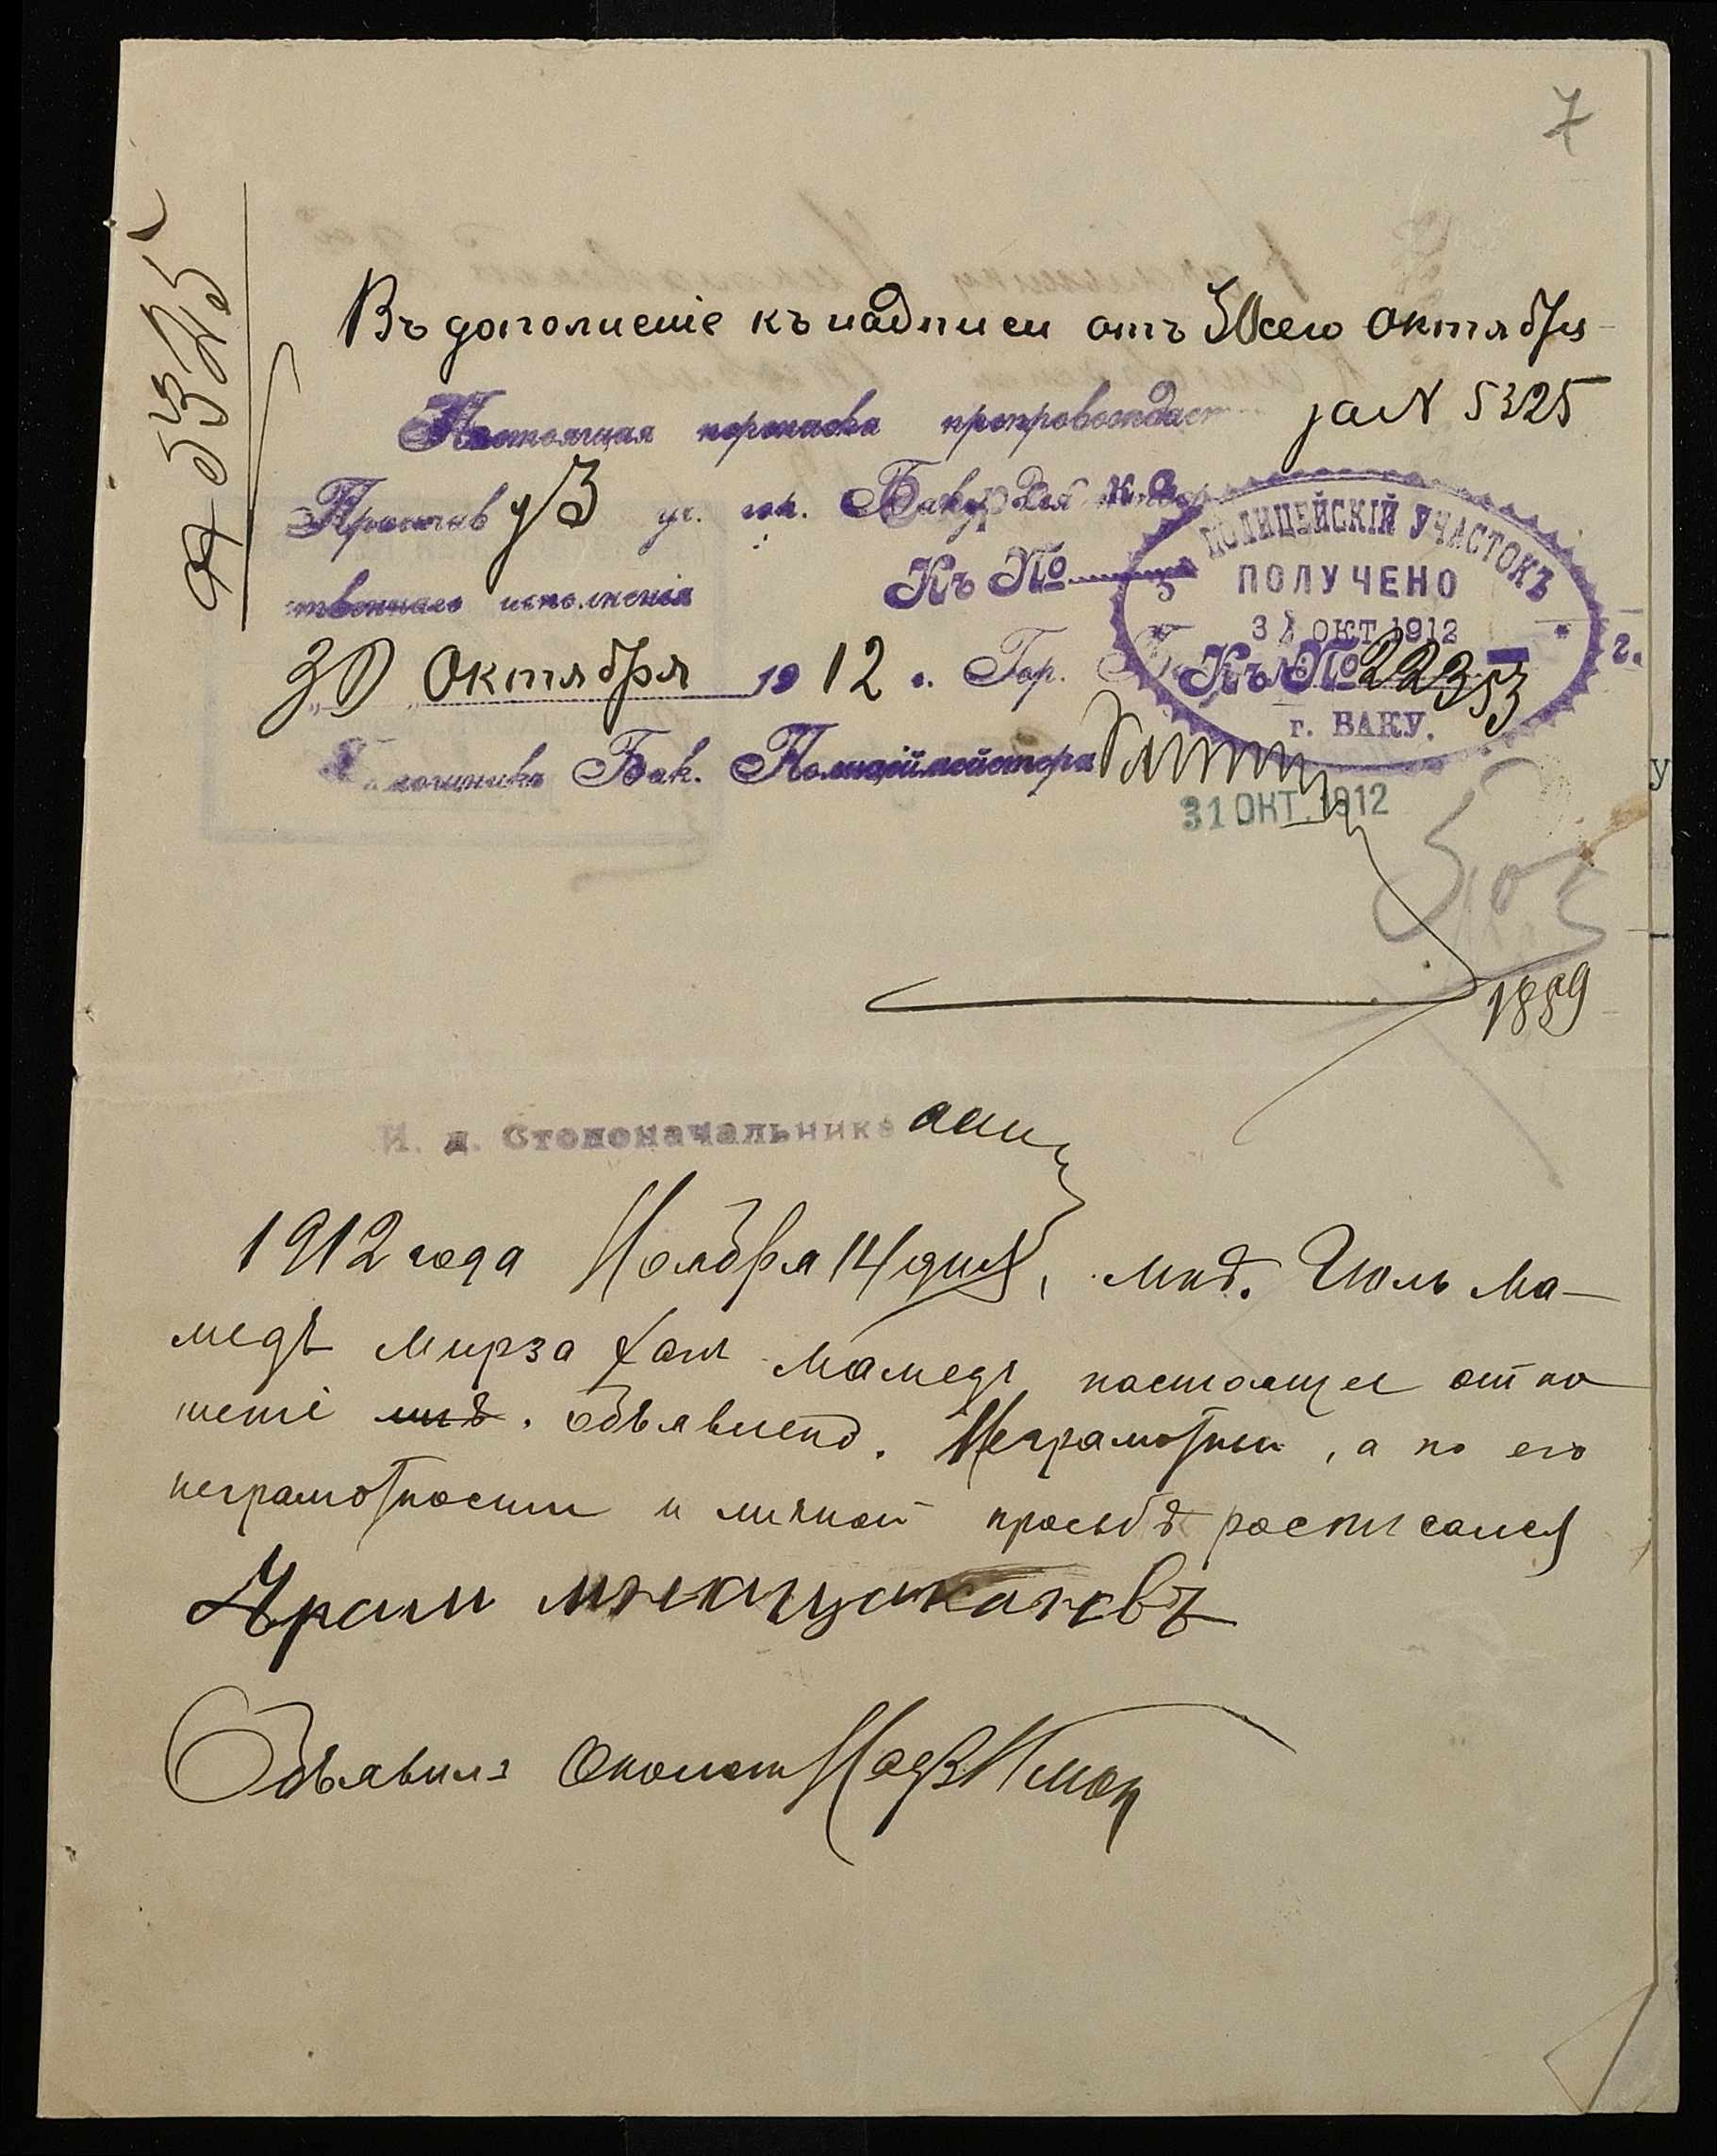 7
5325
Въ дополненіе къ надписи отъ 30 сего Октября
за N 5325
Настоящая переписка препровождает
Приставу 3 уч. гор. Баку для
К. О.
ПОЛИЦЕЙСКІЙ УЧАСТОКЪ
3
ПОЛУЧЕНО
ОКТ 1912
Къ №
Къ № 22353
г. БАКУ.
твеннаго исполненія
30 Октября 1912 г. Гор.
г.
Помощника Бак. Полиціймейстера
31 ОКТ. 1912
1889
И. д. Столоначальника
1912 года Ноября 14 дня, мнѣ. Гюль Ма-
медъ Мирза Мамедъ настоящее отно
шеніе мнѣ. объявлено. Неграмотный, а по его
неграмотности и личной просьбѣ росписался
Объявилъ Околот